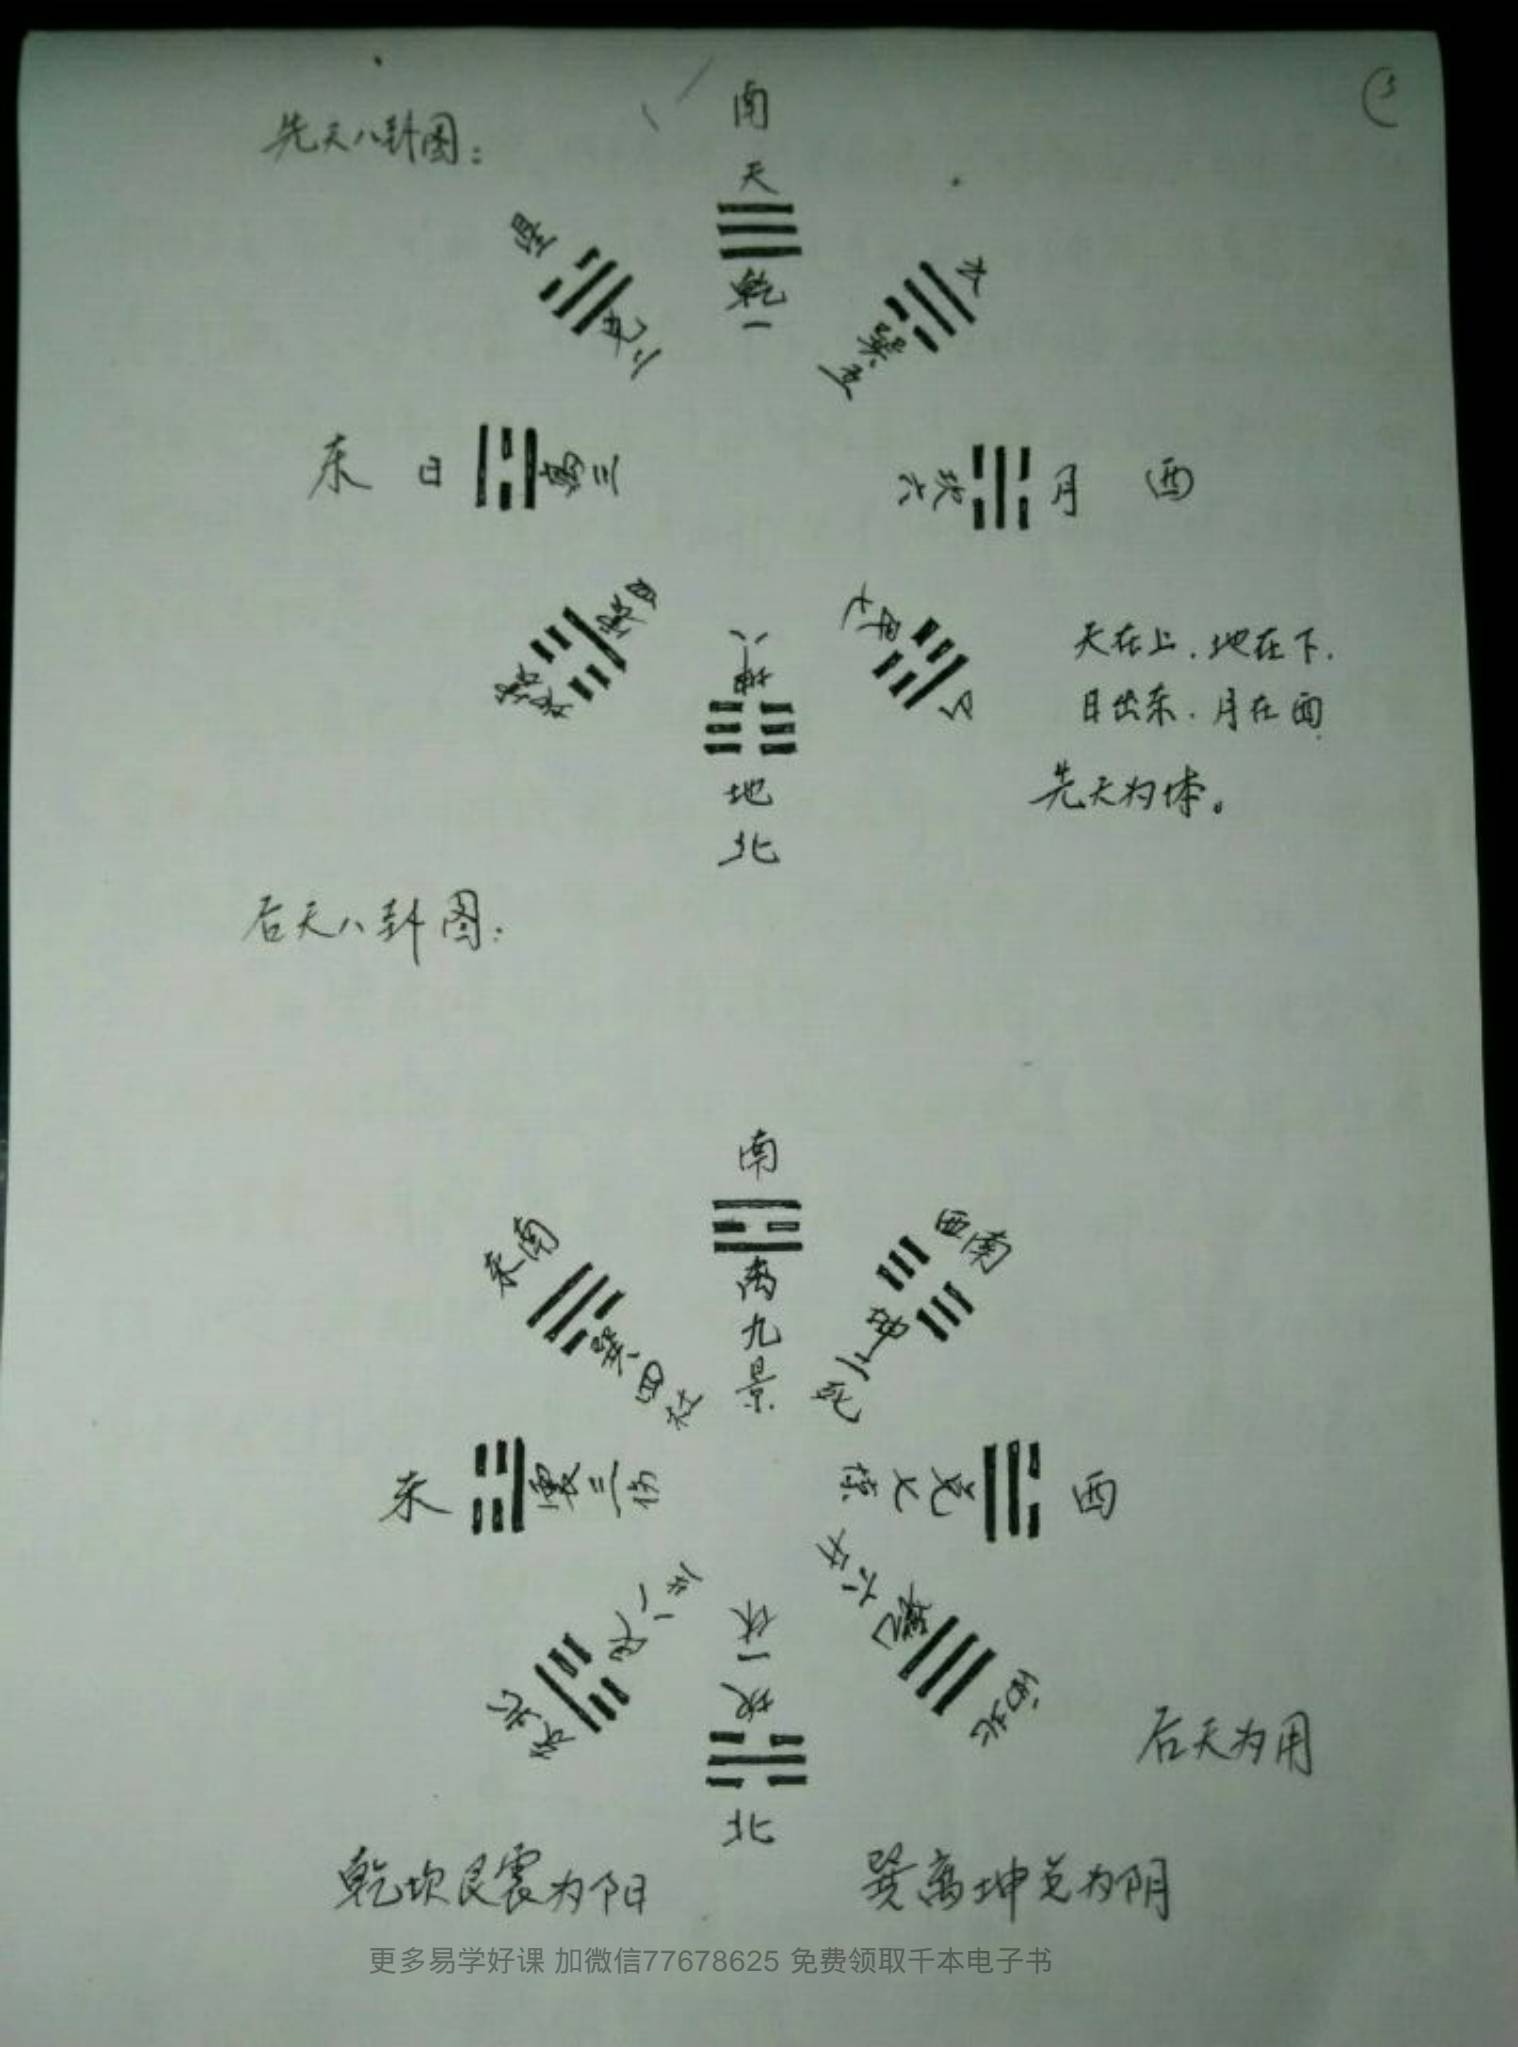 先天八卦图：
南
天
乾一
兑二
巽五
东 日 离三
坎六 月 西
震四
艮七 山
坤八
地
北
天在上．地在下．
日出东．月在西．
先天为体。
后天八卦图：
南
离九景
东南 巽四杜
西南 坤二死
东 震三伤
兑七惊 西
东北 艮八生
乾六开 西北
坎一休
北
后天为用
乾坎艮震为阳
巽离坤兑为阴
更多易学好课 加微信77678625 免费领取千本电子书